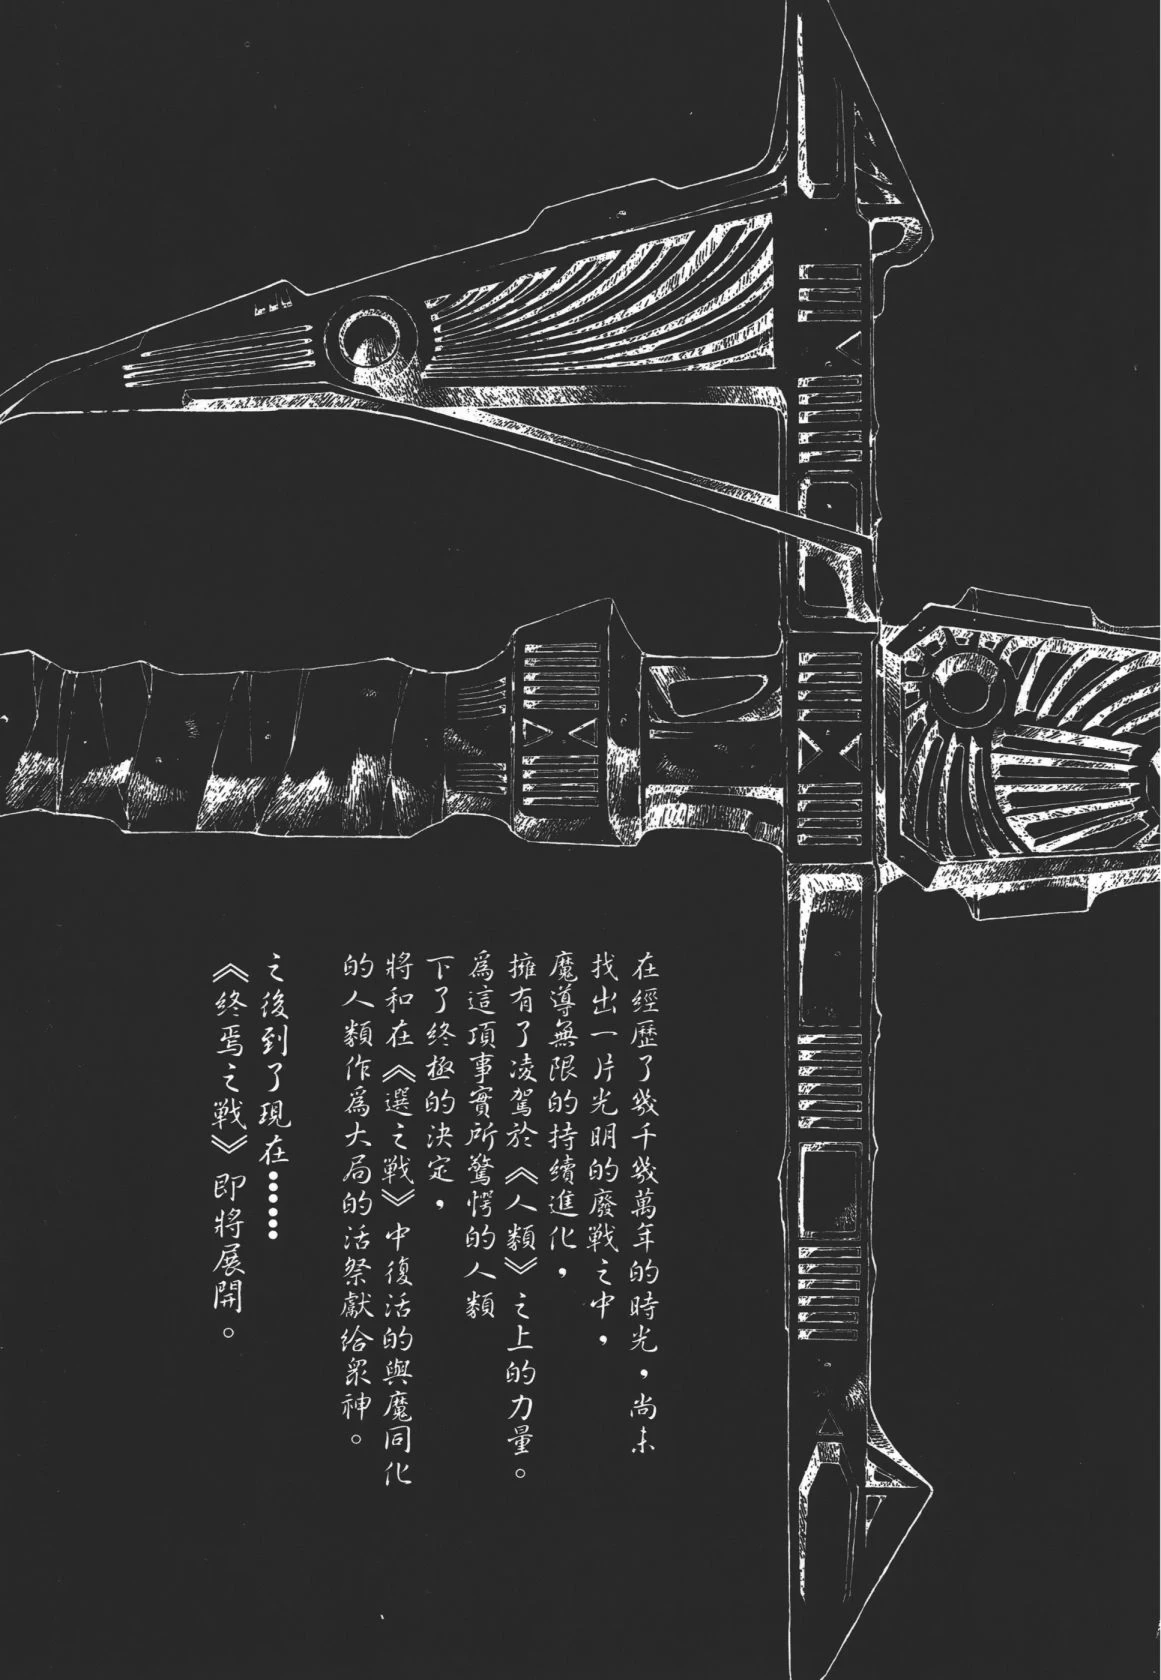 在經歷了幾千幾萬年的時光，尚未
找出一片光明的廢戰之中，
魔導無限的持續進化，
擁有了凌駕於《人類》之上的力量。
為這項事實所驚愕的人類
下了終極的決定，
將和在《選之戰》中復活的與魔同化
的人類作為大局的活祭獻給眾神。
之後到了現在……
《終焉之戰》即將展開。